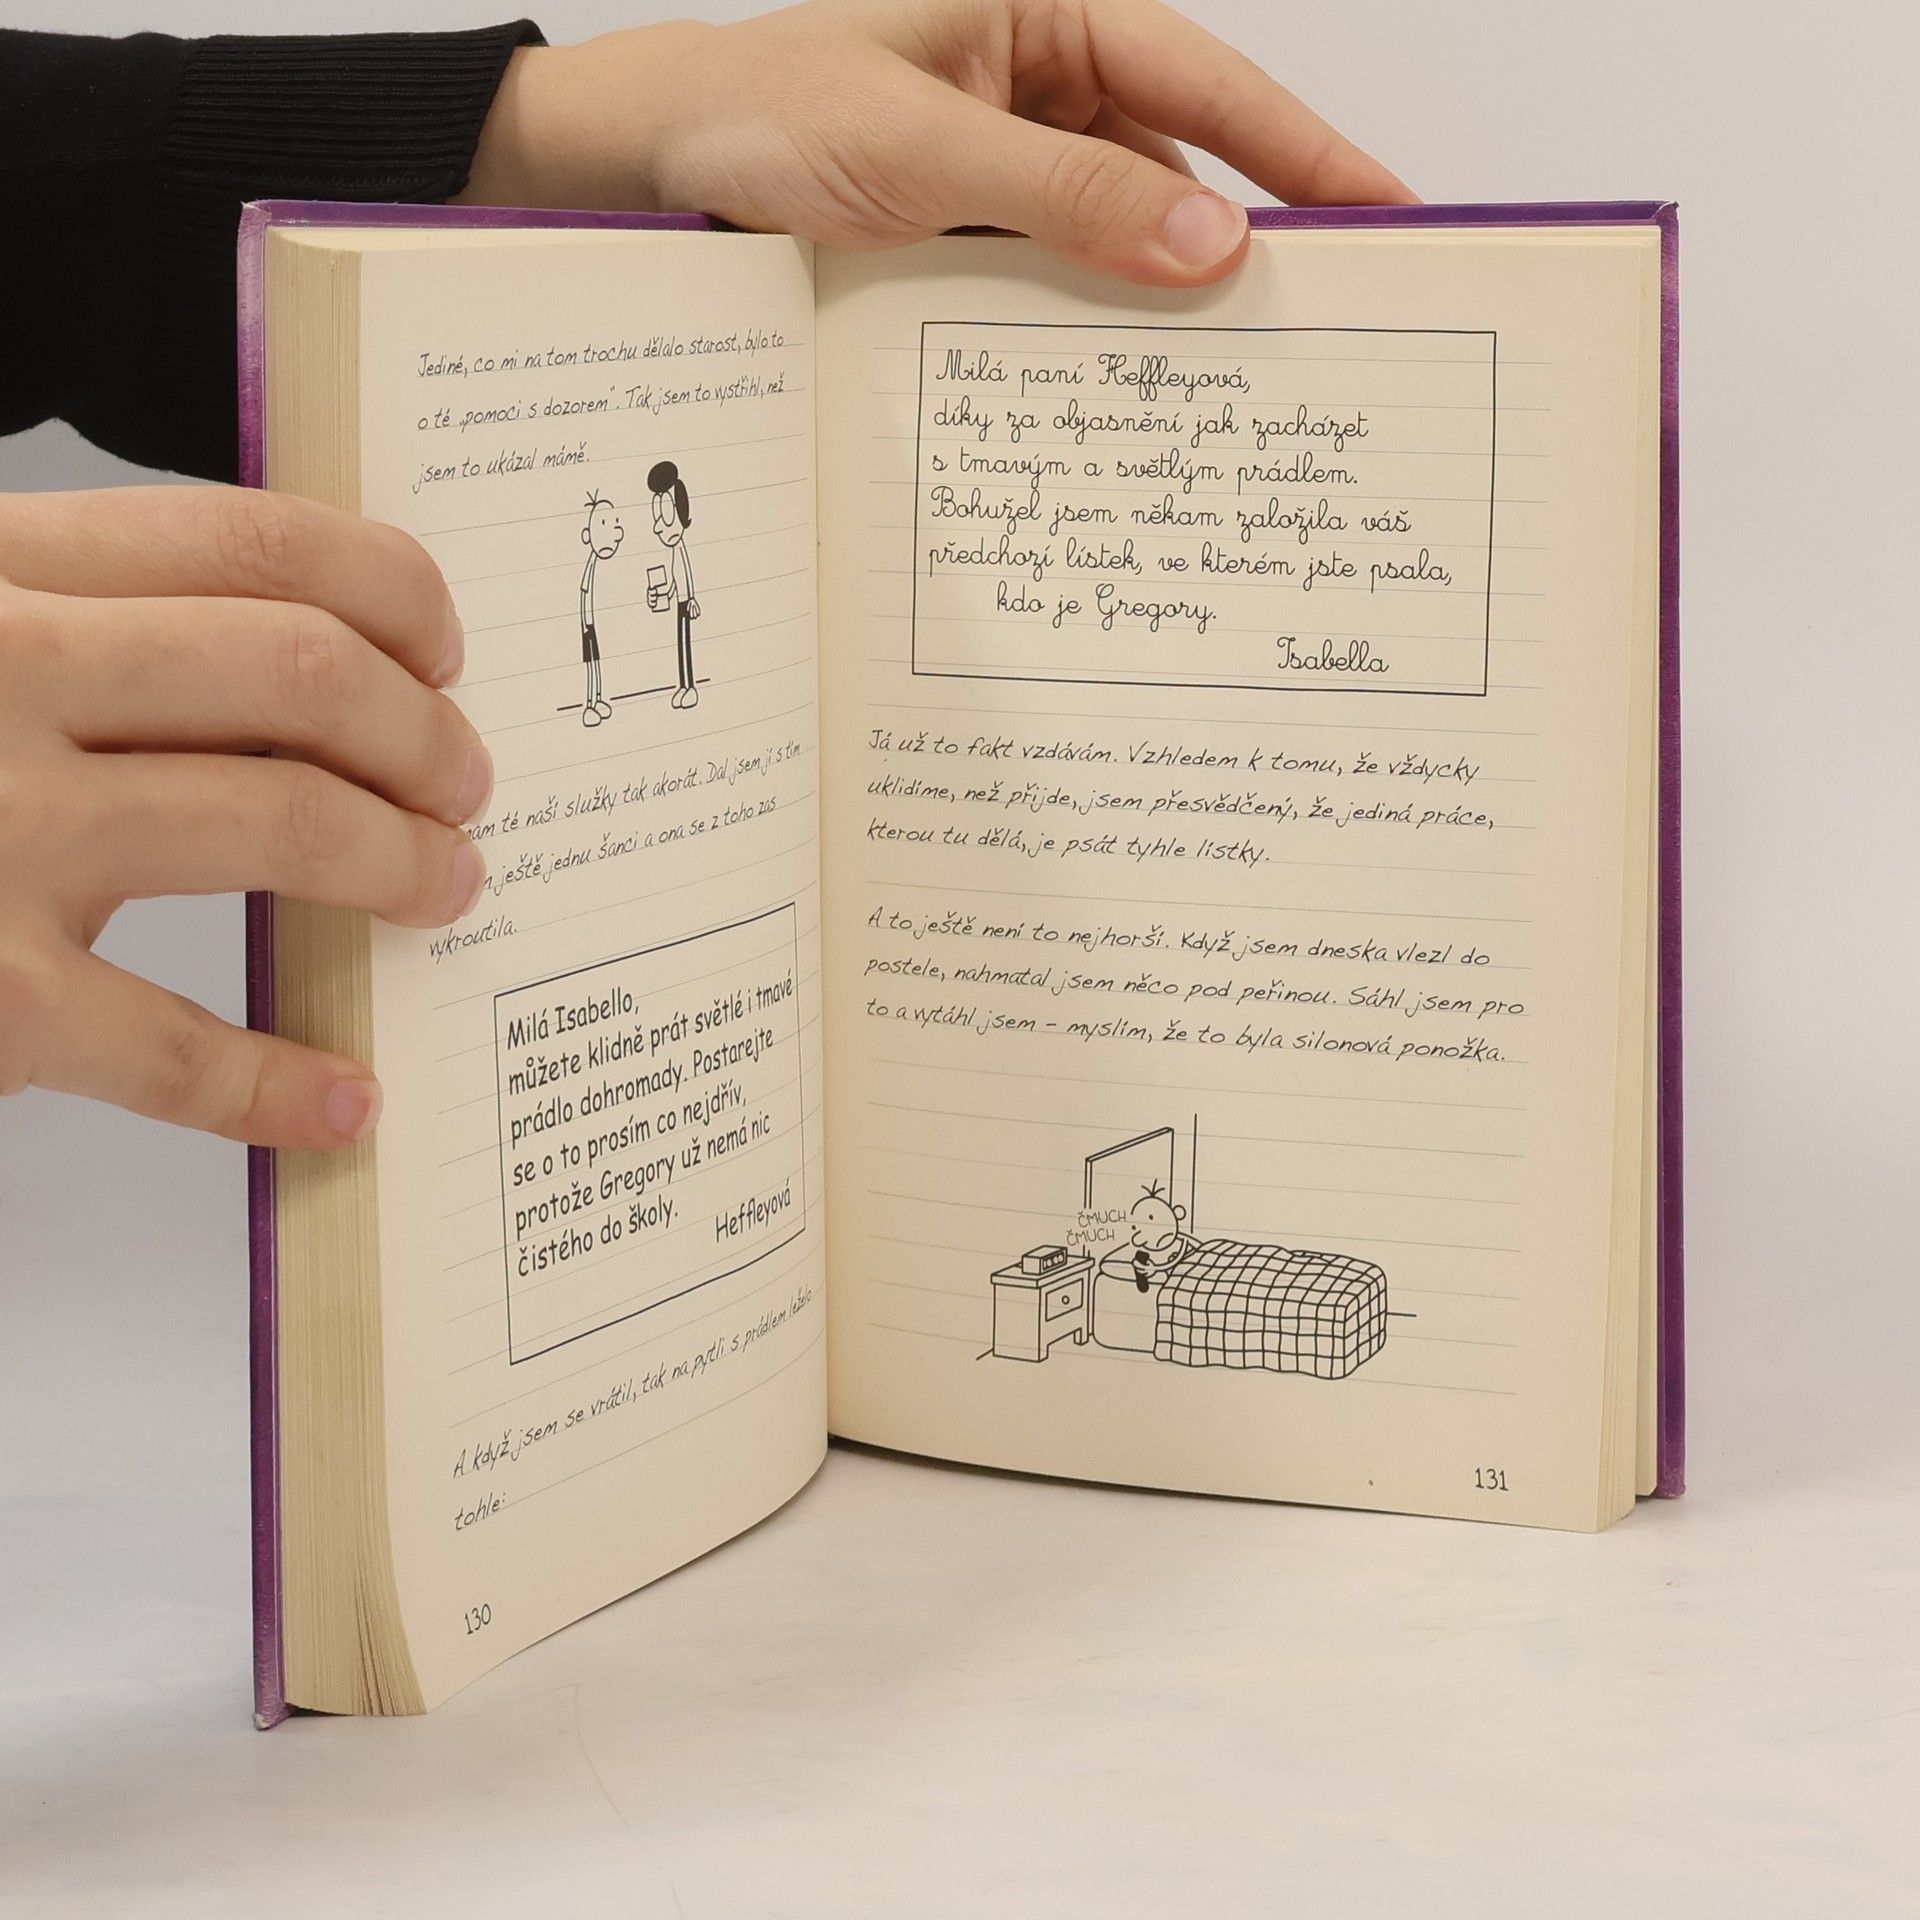 Jediné, co mi na tom trochu dělalo starost, bylo to
o té „pomoci s dozorem“. Tak jsem to vystřihl, než
jsem to ukázal mámě.
té naší služky tak akorát. Dal jsem jí s tím
ještě jednu šanci a ona se z toho zas
vykroutila.
Milá Isabello,
můžete klidně prát světlé i tmavé
prádlo dohromady. Postarejte
se o to prosím co nejdřív,
protože Gregory už nemá nic
čistého do školy.
Heffleyová
A když jsem se vrátil, tak na pytli s prádlem leželo
tohle:
130
Milá paní Heffleyová,
díky za objasnění jak zacházet
s tmavým a světlým prádlem.
Bohužel jsem někam založila váš
předchozí lístek, ve kterém jste psala,
kdo je Gregory.
Isabella
Já už to fakt vzdávám. Vzhledem k tomu, že vždycky
uklidíme, než přijde, jsem přesvědčený, že jediná práce,
kterou tu dělá, je psát tyhle lístky.
A to ještě není to nejhorší. Když jsem dneska vlezl do
postele, nahmatal jsem něco pod peřinou. Sáhl jsem pro
to a vytáhl jsem – myslím, že to byla silonová ponožka.
ČMUCH
ČMUCH
131